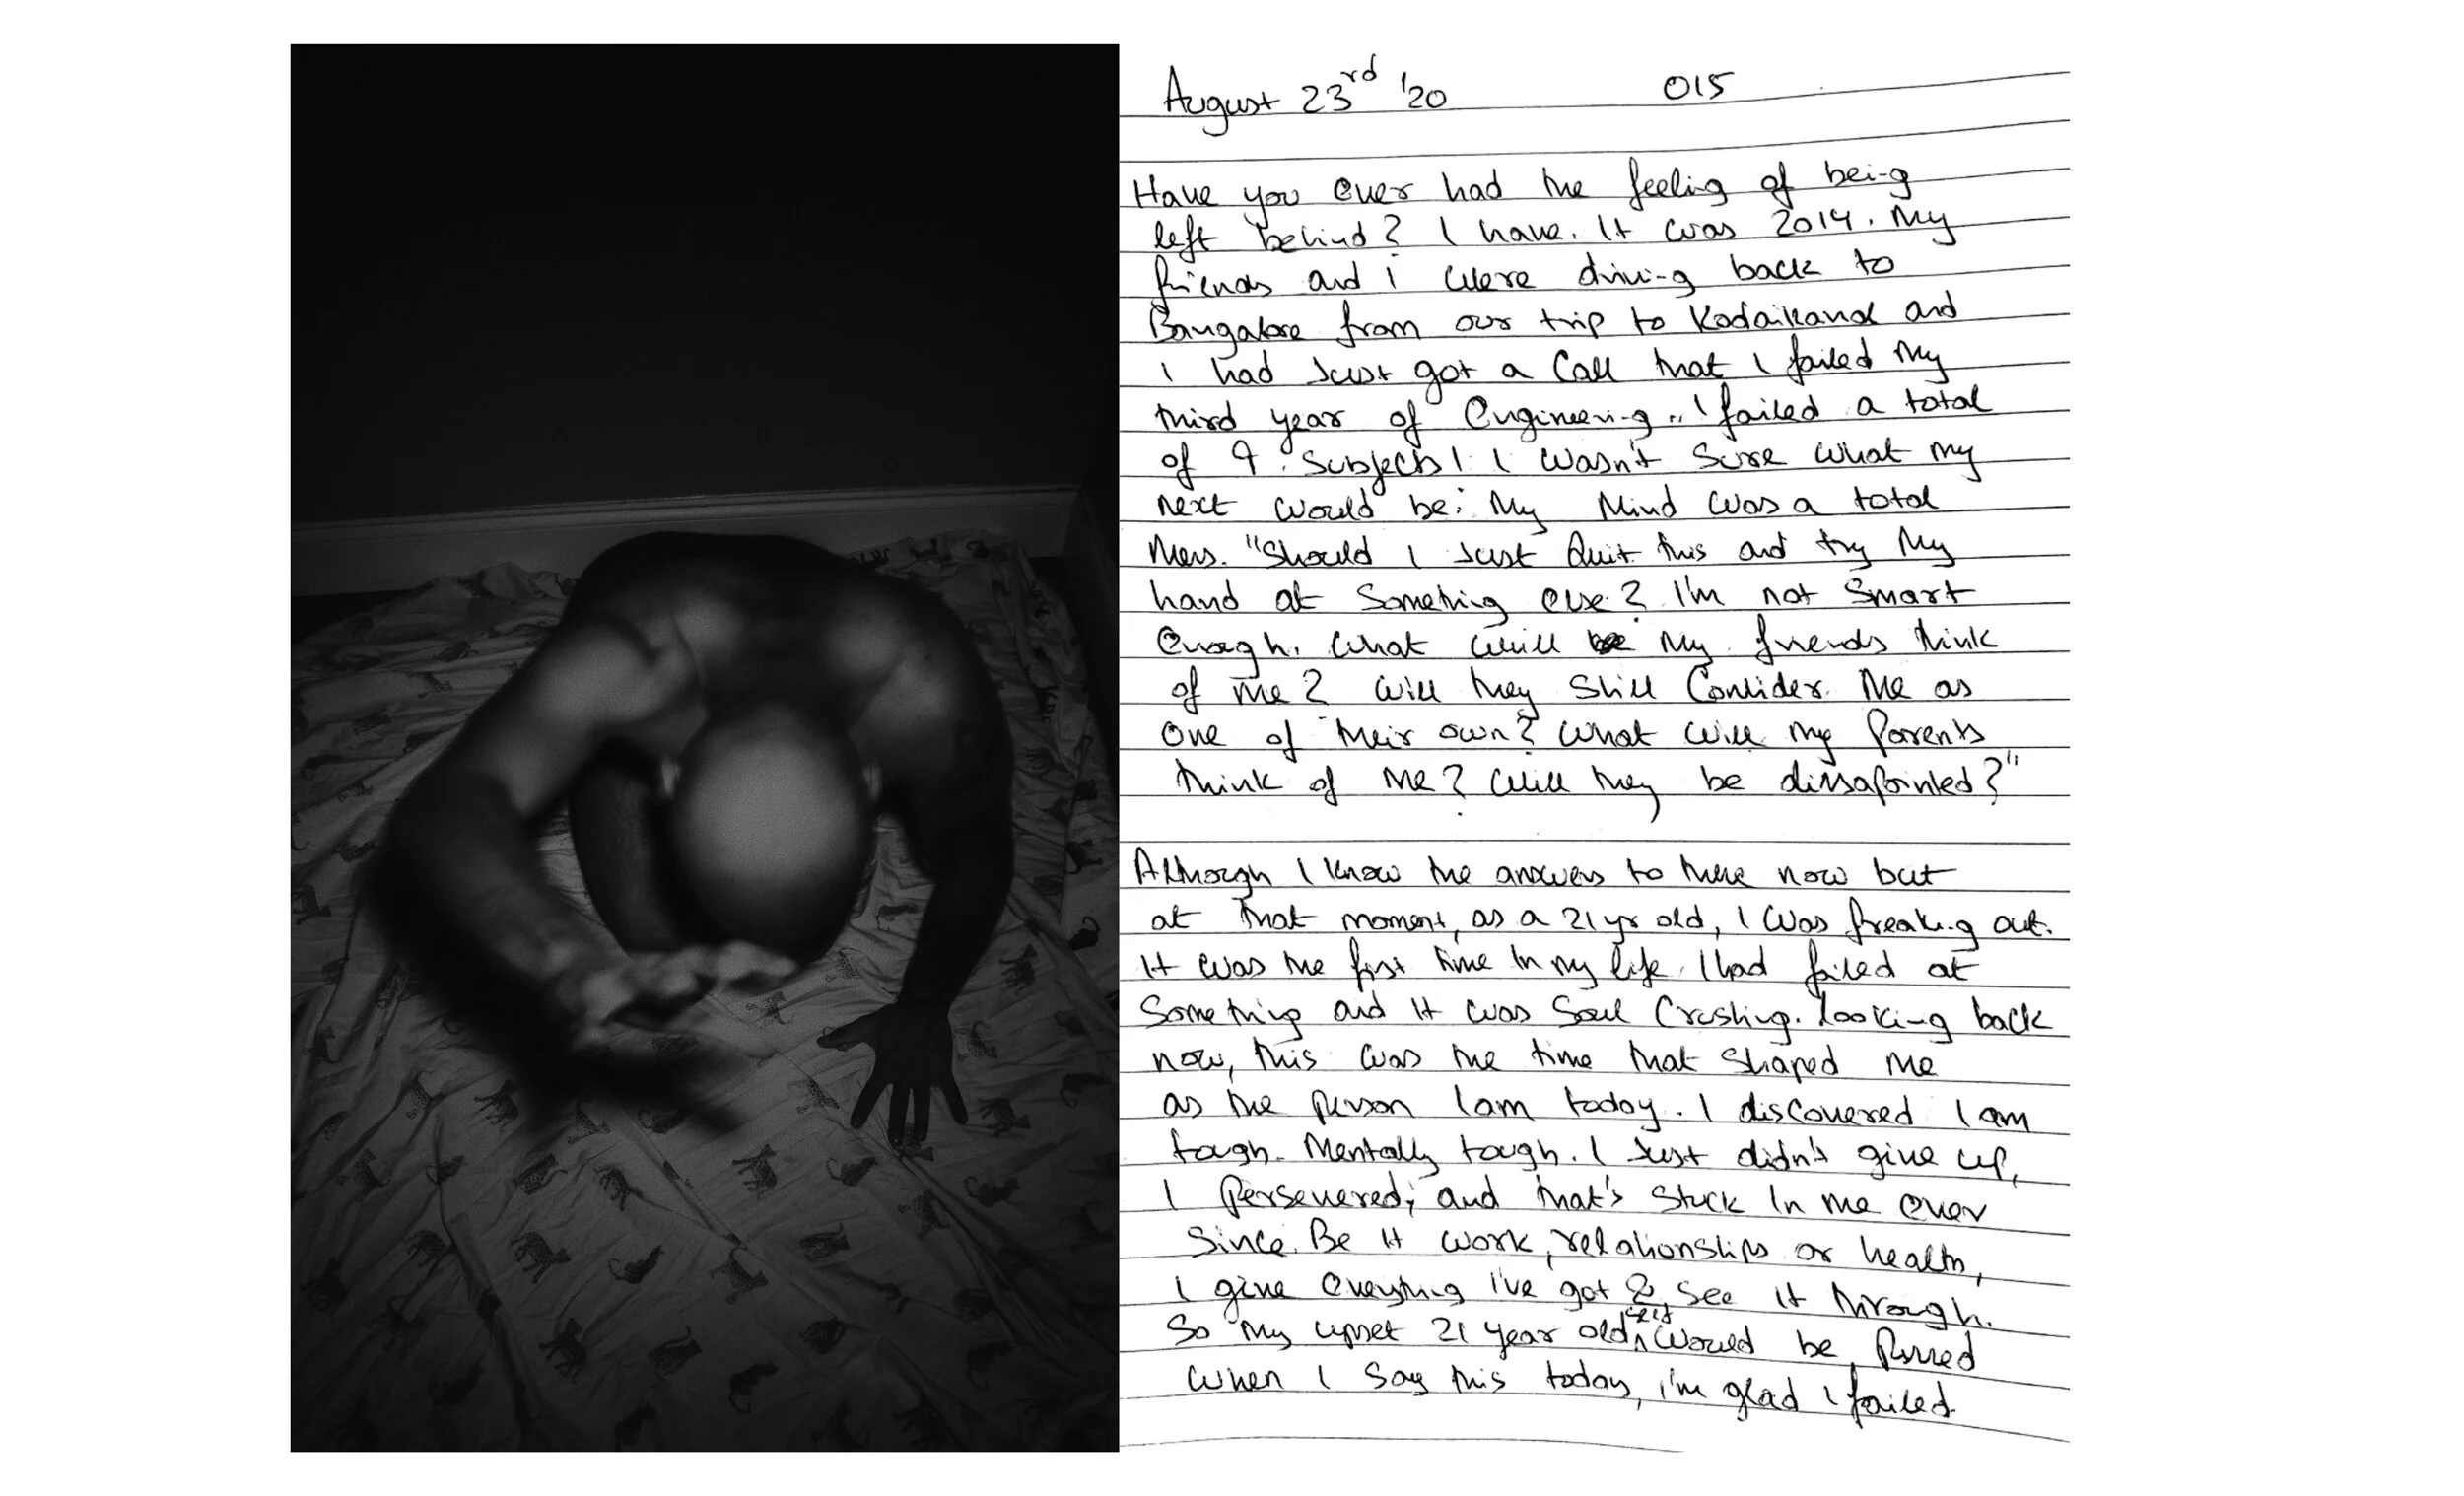 August 23rd '20 015
Have you ever had the feeling of being
left behind? I have. It was 2014. My
friends and i were driving back to
Bangalore from our trip to Kodaikanal and
i had Just got a Call that I failed My
third year of Engineering.. I failed a total
of 9 Subjects! I wasn't Sure what my
next would be. My Mind was a total
Mess. "Should I Just Quit this and try My
hand at Something else? I'm not Smart
Enough. What will My friends think
of me? Will they Still Consider Me as
One of their own? What will my Parents
think of Me? Will they be dissapointed?"
Although I know the answers to these now but
at that moment, as a 21 yr old, I was freaking out.
It was the first time In my life I had failed at
Something and It was Soul Crushing. Looking back
now, this was the time that Shaped Me
as the person I am today. I discovered I am
tough. Mentally tough. I Just didn't give up,
I Persevered; and that's Stuck In me ever
Since. Be It work, relationships or health,
I give Everything i've got & See It through.
So my upset 21 year old self would be Pissed
When I Say this today, i'm glad I failed.